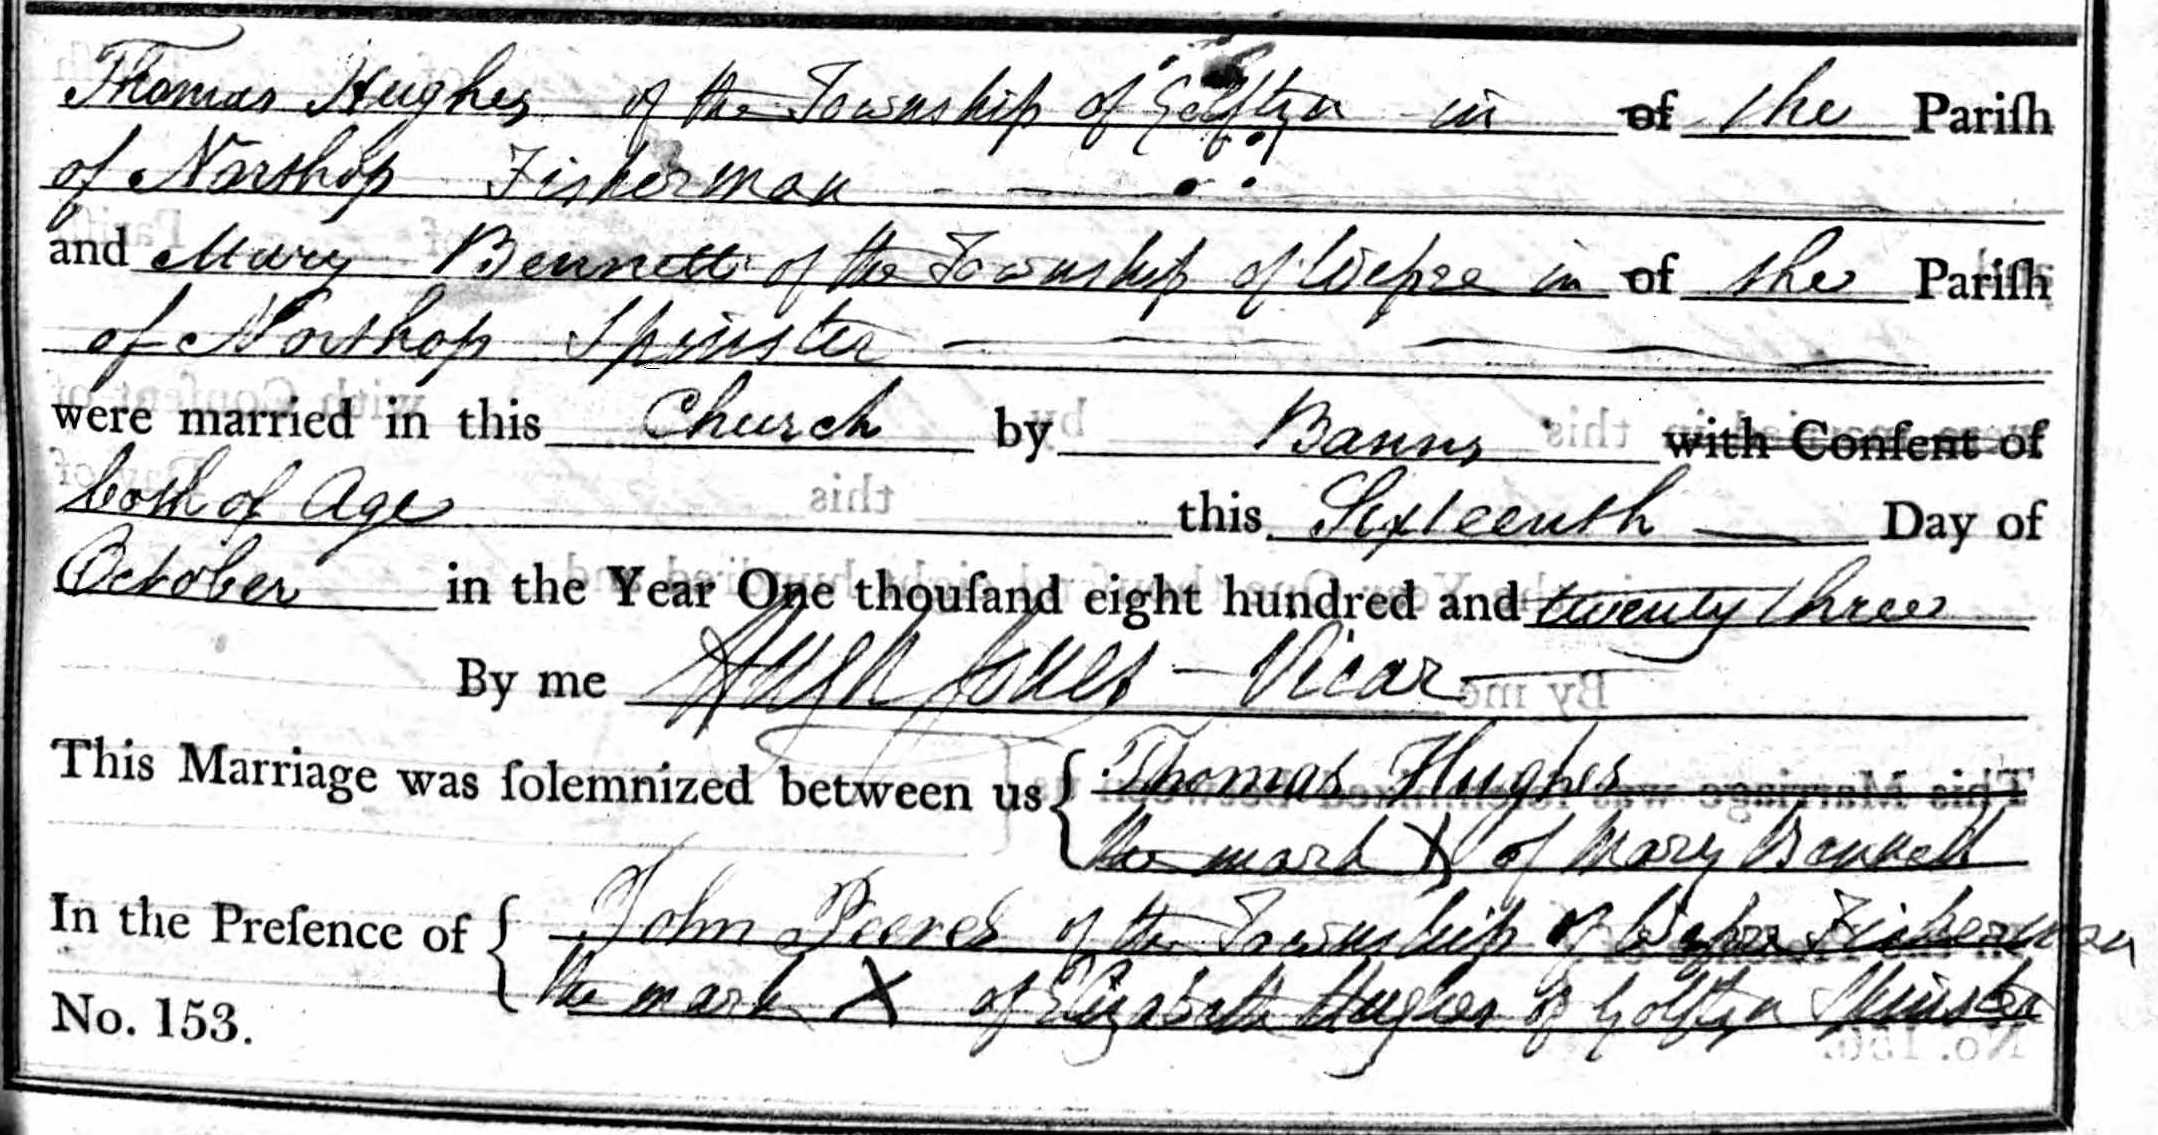 Thomas Hughes of the Township of Golftyn in of the Pariſh
of Northop Fisherman
and Mary Bennett of the Township of Wepre in of the Pariſh
of Northop Spinster
were married in this Church by Banns with Conſent of
both of Age this Sixteenth Day of
October in the Year One thouſand eight hundred and twenty three
By me Hugh Jones - Vicar
This Marriage was ſolemnized between us { Thomas Hughes
the mark X of Mary Bennett
In the Preſence of { John of the Township of Wepre Fisherman
the mark X of Elizabeth Hughes of Golftyn Spinster
No. 153.